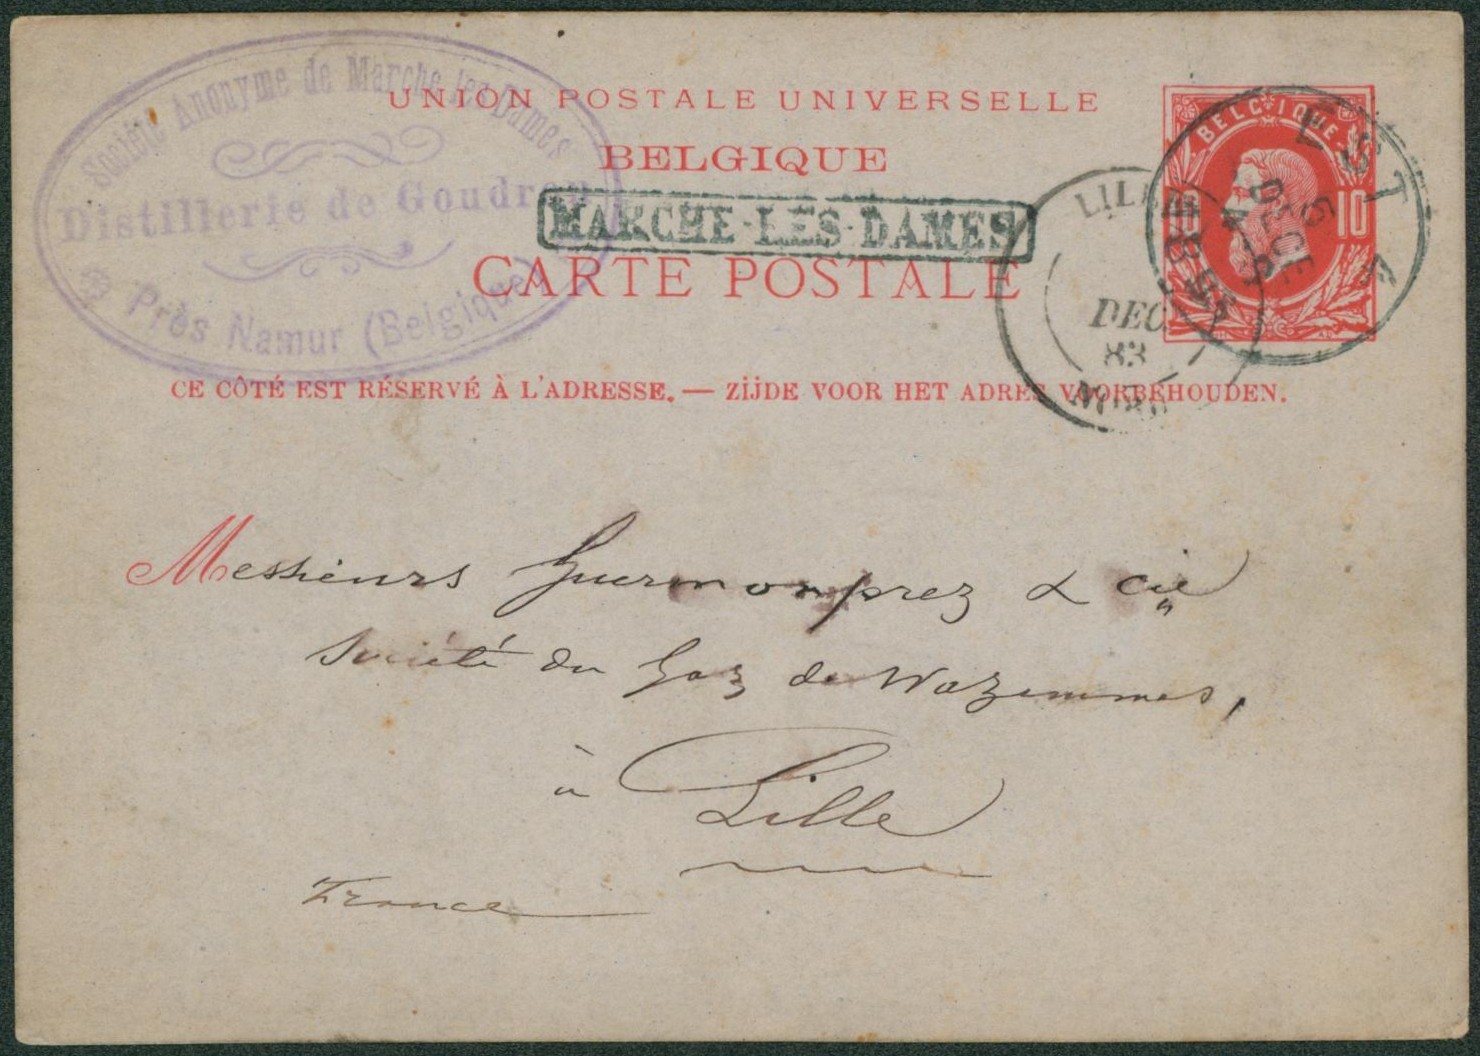 Société Anonyme de Marche les Dames
Distillerie de Goudron
Près Namur (Belgique)
UNION POSTALE UNIVERSELLE
BELGIQUE
MARCHE-LES-DAMES
CARTE POSTALE
BELGIQUE
10
EST 4
5
DECE
LILLE
DEC
83
NORD
CE CÔTÉ EST RÉSERVÉ À L'ADRESSE. — ZIJDE VOOR HET ADRES VOORBEHOUDEN.
Messieurs Guermonprez & Cie
Société du Gaz de Wazemmes,
à
Lille
France